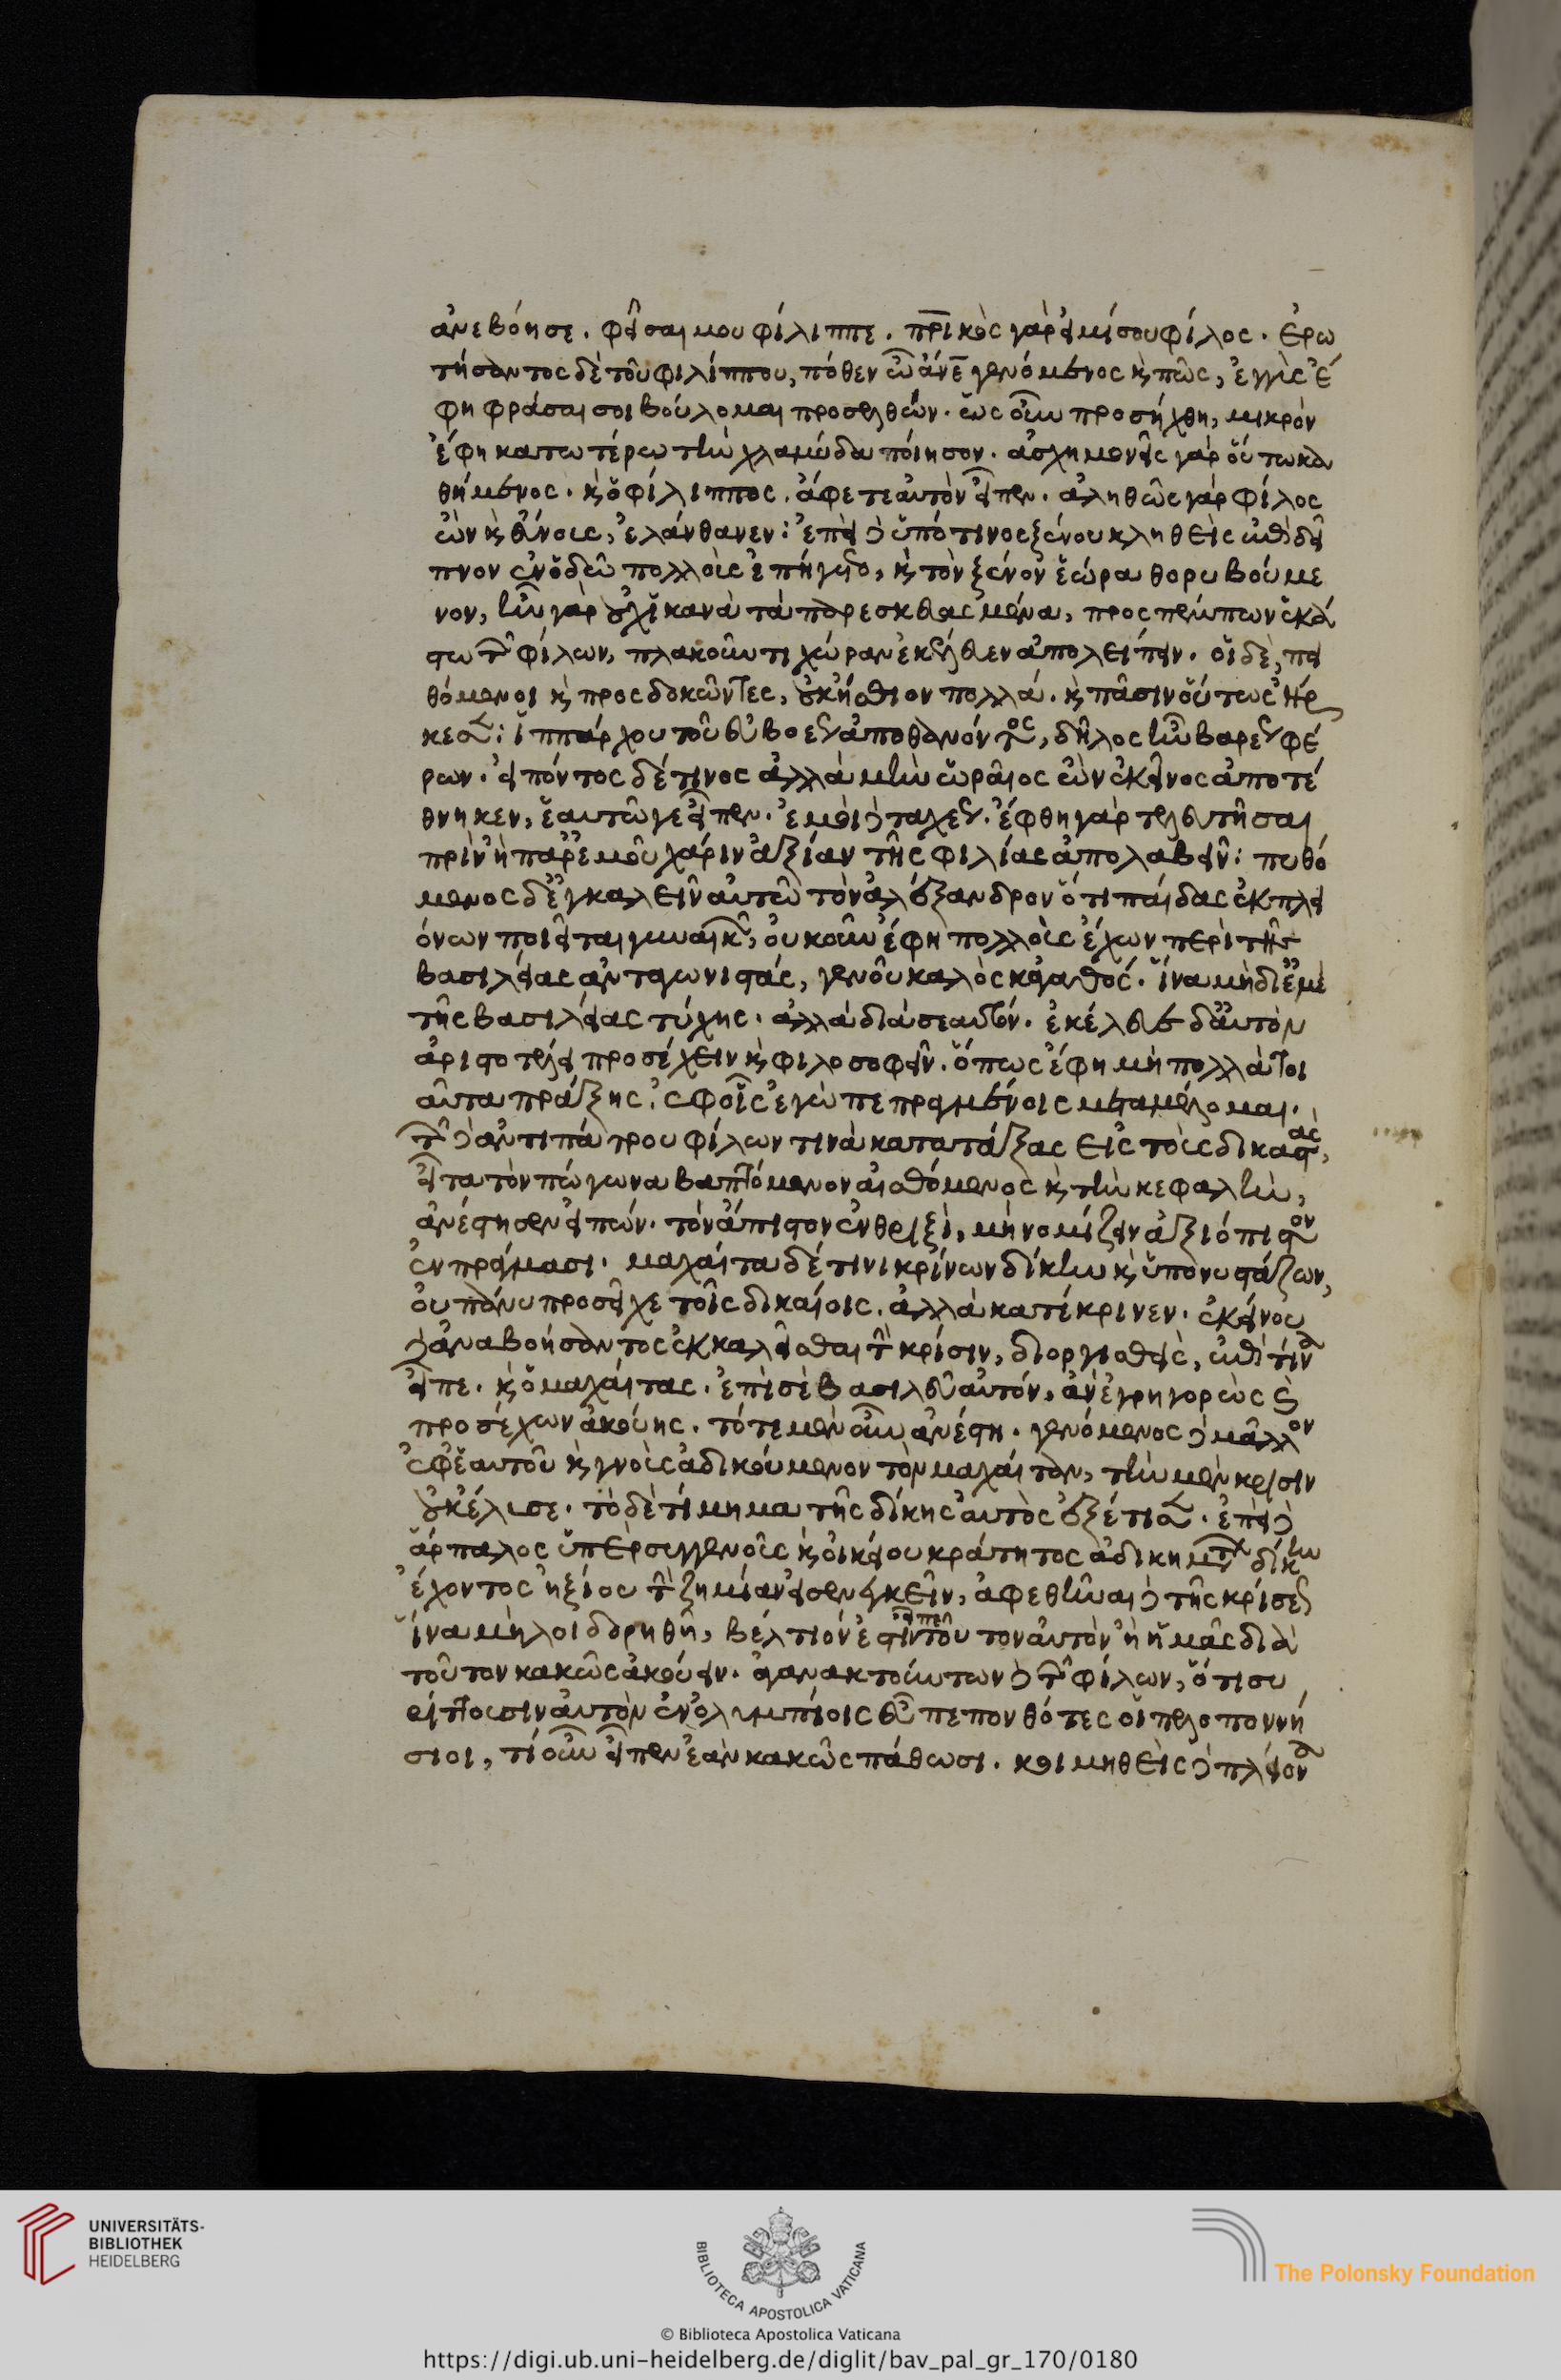 ἀνεβόησε. φεῖσαι μου φίλιππε. πρικὸς γὰρ εἰμί σου φίλος. ἐρω
τήσαντος δὲ τοῦ φιλίππου, πόθεν ὦ ἄνε γενόμενος κ πῶς, ἐγγὺς ἔ
φη φράσαι σοι βούλομαι προσελθών. ὡς οὖν προσήχθη, μικρὸν
ἔφη κατωτέρω τὴν χλαμύδα ποίησον. ἀσχημονεῖς γὰρ οὕτω κα
θήμενος. κ ὁ φίλιππος. ἄφετε αὐτὸν εἶπεν. ἀληθῶς γὰρ φίλος
ὢν κ εὔνους, ἐλάνθανεν: ἐπεὶ δὲ ὑπό τινος ξένου κληθεὶς ἐπὶ δεῖ
πνον ἐν ὁδῷ πολλοὺς ἐπήγετο, κ τὸν ξένον ἑώρα θορυβούμε
νον, ἦν γὰρ οὐχ ἱκανὰ τὰ παρεσκευασμένα, προσπέμπων ἑκά
στω τῶν φίλων, πλακοῦντι χώραν ἐκέλευεν ἀπολείπειν. οἱ δὲ, πει
θόμενοι κ προσδοκῶντες, οὐκ ἤσθιον πολλά. κ πᾶσιν οὕτως ἤρ
κεσεν: ἱππάρχου τοῦ εὐβοέως ἀποθανόντος, δῆλος ἦν βαρέως φέ
ρων. εἰπόντος δέ τινος ἀλλὰ μὴν ὡραῖος ὢν ἐκεῖνος ἀποτέ
θνηκεν, ἑαυτῶ γε εἶπεν. ἐμοὶ δὲ ταχέως. ἔφθη γὰρ τελευτῆσαι
πρὶν ἢ παρ' ἐμοῦ χάριν ἀξίαν τῆς φιλίας ἀπολαβεῖν: πυθό
μενος δ' ἐγκαλεῖν αὐτῶ τὸν ἀλέξανδρον ὅτι παῖδας ἐκ πλει
όνων ποιεῖται γυναικῶν, οὐκοῦν ἔφη πολλοὺς ἔχων περὶ τῆς
βασιλείας ἀνταγωνιστάς, γενοῦ καλὸς κἀγαθός. ἵνα μὴ δι' ἐμὲ
τῆς βασιλείας τύχης. ἀλλὰ διὰ σεαυτόν. ἐκέλευε δ' αὐτὸν
ἀριστοτέλει προσέχειν κ φιλοσοφεῖν. ὅπως ἔφη μὴ πολλὰ τοι
αῦτα πράξης, ἐφ' οἷς ἐγὼ πεπραγμένοις μεταμέλομαι.
τῶν δὲ ἀντιπάτρου φίλων τινὰ κατατάξας εἰς τοὺς δικαστὰς,
εἶτα τὸν πώγωνα βαπτόμενον αἰσθόμενος κ τὴν κεφαλὴν,
ἀνέστησεν εἰπών. τὸν ἄπιστον ἐν θριξὶ, μὴ νομίζειν ἀξιόπιστον
ἐν πράγμασι. μαχαίτα δέ τινι κρίνων δίκην κ ὑπονυστάζων,
οὐ πάνυ προσεῖχε τοῖς δικαίοις. ἀλλὰ κατέκρινεν. ἐκείνου
δὲ ἀναβοήσαντος ἐκκαλεῖσθαι τὴν κρίσιν, διοργισθεὶς, ἐπὶ τίνα
εἶπε. κ ὁ μαχαίτας. ἐπὶ σὲ βασιλεῦ αὐτόν, ἂν ἐγρηγορὼς κ
προσέχων ἀκούης. τότε μὲν οὖν ἀνέστη. γενόμενος δὲ μᾶλλον
ἐφ' ἑαυτοῦ κ γνοὺς ἀδικούμενον τὸν μαχαίταν, τὴν μὲν κρίσιν
οὐκ ἔλυσε. τὸ δὲ τίμημα τῆς δίκης αὐτὸς ἐξέτισεν. ἐπεὶ δὲ
ἅρπαλος ὑπὲρ συγγενοῦς κ οἰκείου κράτητος ἀδικημάτων δίκην
ἔχοντος ἠξίου τὴν ζημίαν εἰσενεγκεῖν, ἀφεθῆναι δὲ τῆς κρίσεως
ἵνα μὴ λοιδορηθῆ, βέλτιόν ἐστιν εἶπεν τοῦτον αὐτὸν ἢ ἡμᾶς διὰ
τοῦτον κακῶς ἀκούειν. ἀγανακτούντων δὲ τῶν φίλων, ὅτι συ
ρίττουσιν αὐτὸν ἐν ὀλυμπίοις εὖ πεπονθότες οἱ πελοποννή
σιοι, τί οὖν εἶπεν ἐὰν κακῶς πάθωσι. κοιμηθεὶς δὲ πλείονα
UNIVERSITÄTS-
BIBLIOTHEK
HEIDELBERG
BIBLIOTECA APOSTOLICA VATICANA
The Polonsky Foundation
© Biblioteca Apostolica Vaticana
https://digi.ub.uni-heidelberg.de/diglit/bav_pal_gr_170/0180